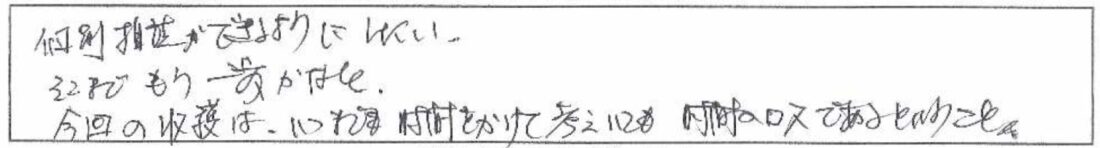 個別指導ができるようにしたい。
そこまでもう一歩かなと。
今回の収穫は、いつまでも時間をかけて考えても時間のロスであるということ。